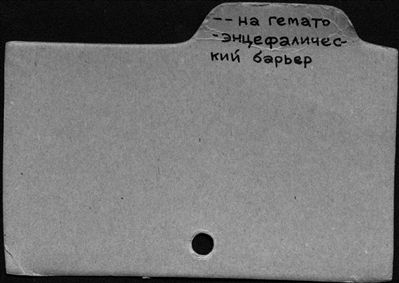 -- на гемато
-энцефаличес-
кий барьер